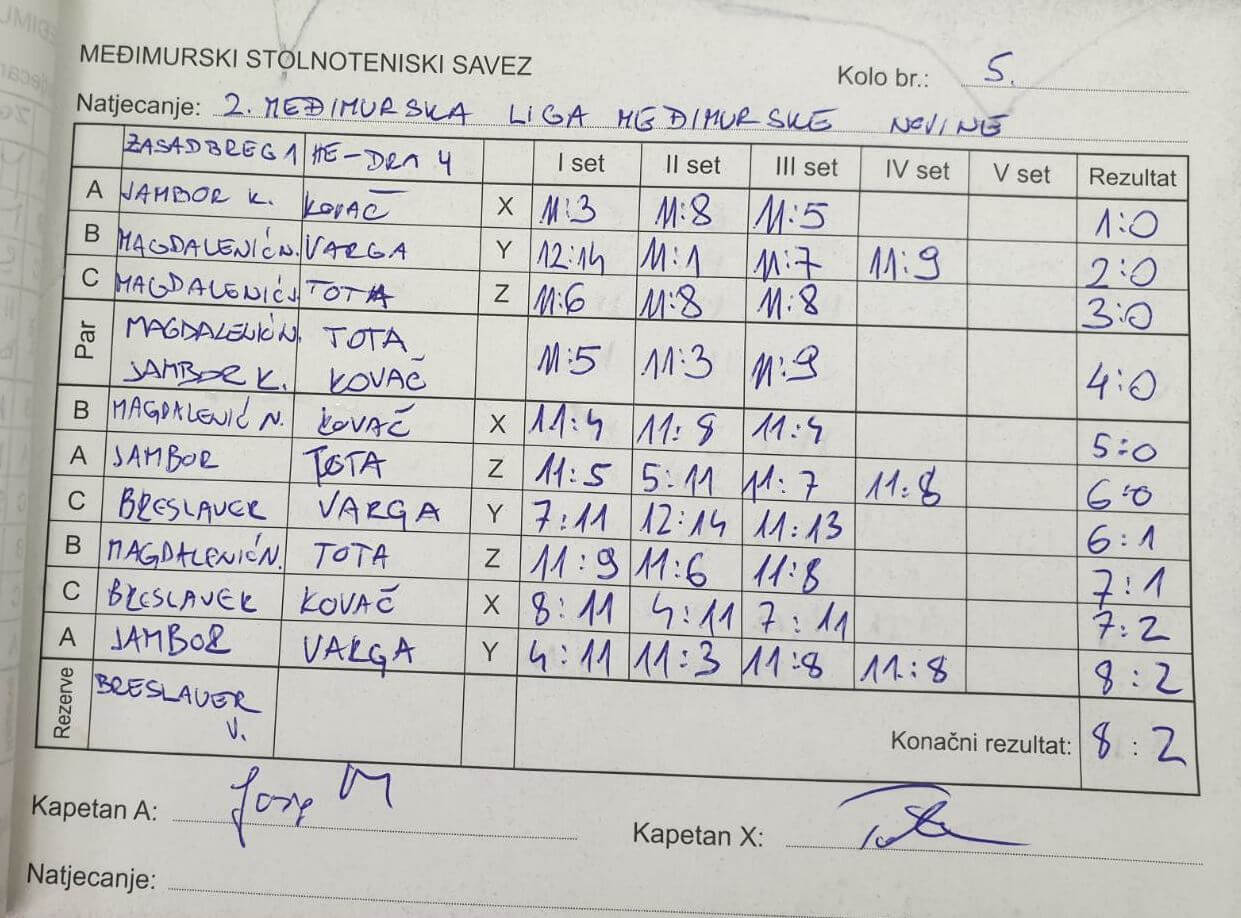 MEĐIMURSKI STOLNOTENISKI SAVEZ
Kolo br.: 5.
Natjecanje: 2. MEĐIMURSKA LIGA MEĐIMURSKE NOVINE
ZASADBREG 1 HE-DRA 4 I set II set III set IV set V set Rezultat
A JAMBOR K. KOVAČ X 11:3 11:8 11:5 1:0
B MAGDALENIĆ N. VARGA Y 12:14 11:1 11:7 11:9 2:0
C MAGDALENIĆ J. TOTA Z 11:6 11:8 11:8 3:0
Par MAGDALENIĆ N. TOTA 11:5 11:3 11:9 4:0
JAMBOR K. KOVAČ
B MAGDALENIĆ N. KOVAČ X 11:4 11:8 11:4 5:0
A JAMBOR TOTA Z 11:5 5:11 11:7 11:8 6:0
C BRESLAUER VARGA Y 7:11 12:14 11:13 6:1
B MAGDALENIĆ N. TOTA Z 11:9 11:6 11:8 7:1
C BRESLAUER KOVAČ X 8:11 4:11 7:11 7:2
A JAMBOR VARGA Y 4:11 11:3 11:8 11:8 8:2
Rezerve BRESLAUER V.
Konačni rezultat: 8:2
Kapetan A:
Kapetan X:
Natjecanje: